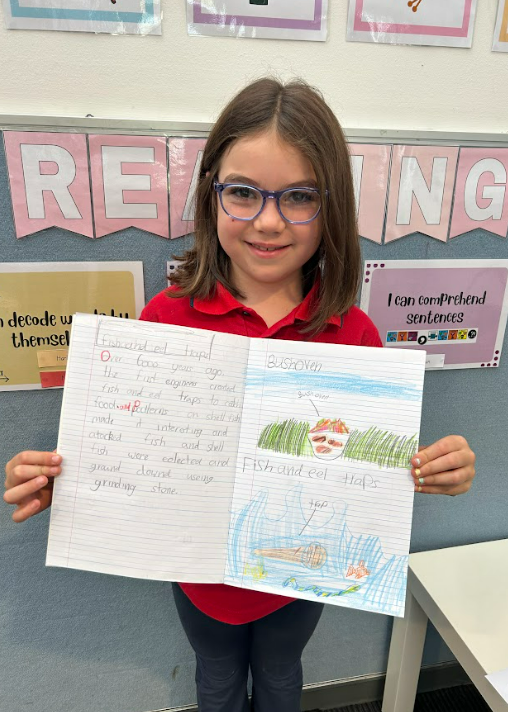 READING
n decode w
themsel
I can comprehend
sentences
Fish and eel traps
Over 6000 years ago
the first engineer created
fish and eel traps to catch
food and Patterns on shell fish
made it intersting and
fish and shell
fish were colected and
ground down useing
grinding stone.
Bushoven
bush oven
Fish and eel traps
trap